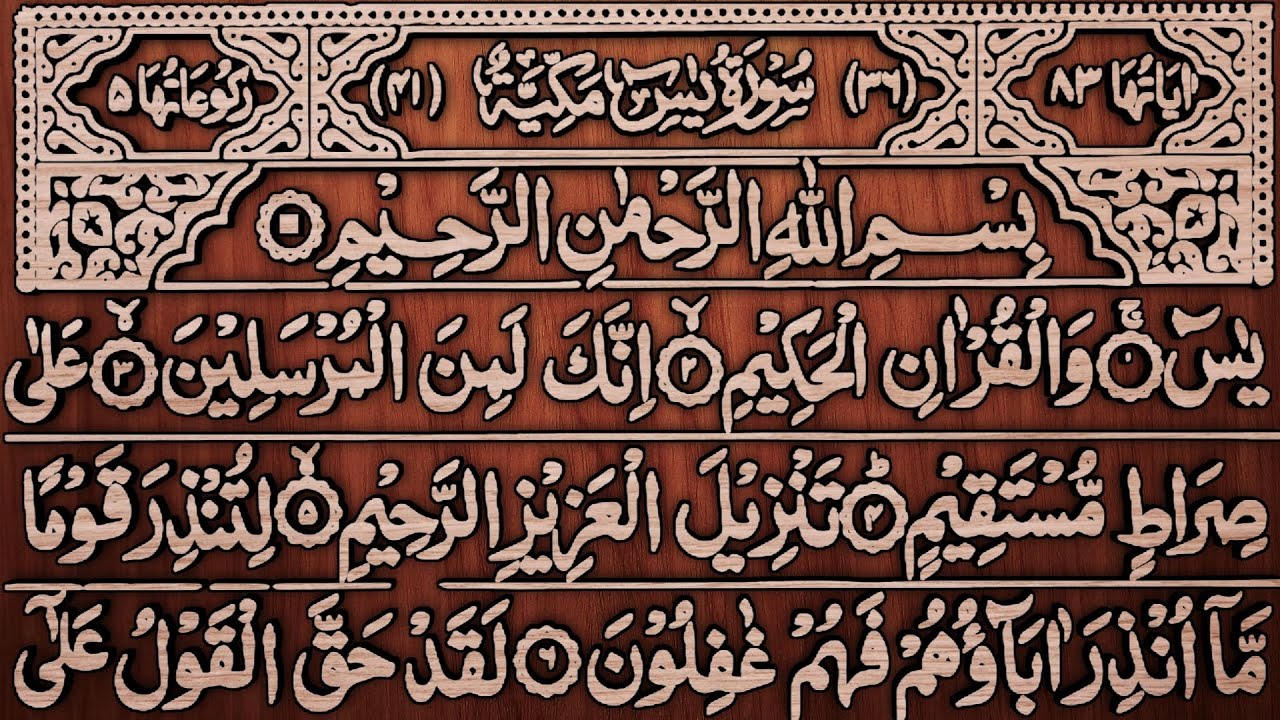 اٰيَاتُهَا ٨٣ (٣٦) سُوْرَةُ يٰسٓ مَكِّيَّةٌ (٤١) رُكُوْعَاتُهَا ٥
بِسْمِ اللّٰهِ الرَّحْمٰنِ الرَّحِيْمِ
يٰسٓ ۚ ﴿١﴾ وَالْقُرْاٰنِ الْحَكِيْمِ ﴿٢﴾ اِنَّكَ لَمِنَ الْمُرْسَلِيْنَ ﴿٣﴾ عَلٰى
صِرَاطٍ مُّسْتَقِيْمٍ ؕ ﴿٤﴾ تَنْزِيْلَ الْعَزِيْزِ الرَّحِيْمِ ﴿٥﴾ لِتُنْذِرَ قَوْمًا
مَّاۤ اُنْذِرَ اٰبَآؤُهُمْ فَهُمْ غٰفِلُوْنَ ﴿٦﴾ لَقَدْ حَقَّ الْقَوْلُ عَلٰۤى